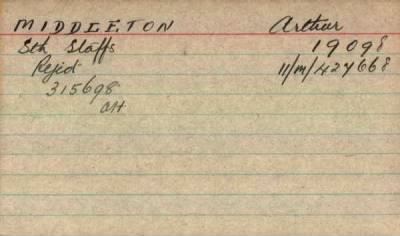 MIDDLETON Arthur
Sth Staffs 19098
Rejid 11/M/424668
315698